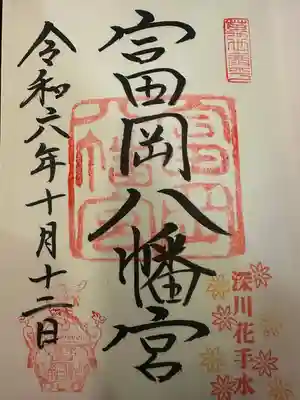 富岡八幡宮
深川花手水
令和六年十月十二日